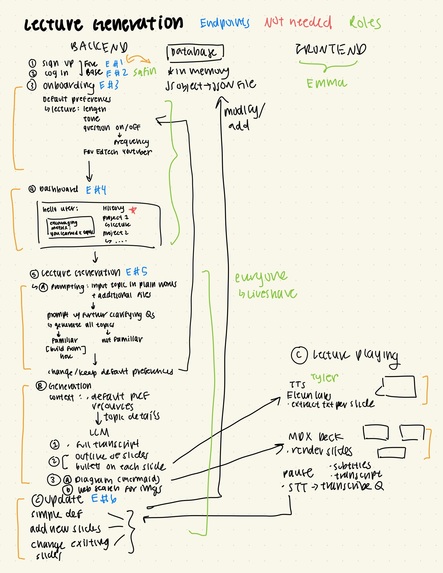 Lecture Generation Endpoints Not needed Roles
BACKEND
① sign up Fire E#1
② Log in Base E#2 Safin
③ onboarding E#3
Default preferences
↳ lecture: length
tone
question on/off
↳ frequency
For EdTech
④ Dashboard E#4
hello user:
History
project 1
↳ lecture
project 2
↳ ....
⑤ Lecture Generation E#5
↳ Ⓐ Prompting: input topic in plain words
+ additional files
prompt w/ further clarifying Qs
↳ generate all topics
Familiar
not familiar
[build from]
here
change/keep default preferences
Ⓑ Generation
context: · default pref
· resources
· topic details
LLM
① · full transcript
② outline of slides
bullet on each slide
③ Ⓐ Diagram (mermaid)
Ⓑ web search for imgs
Ⓒ update E#6
simple def
add new slides
change existing
slides
Database
* in memory
JS object → JSON file
modify/
add
everyone
↳ liveshare
FRONTEND
Emma
Ⓒ Lecture Playing
Tyler
TTS
Eleven Labs
· extract txt per slide
MDX Deck
· render slides
pause
· subtitles
· transcript
· STT → transcribe Q